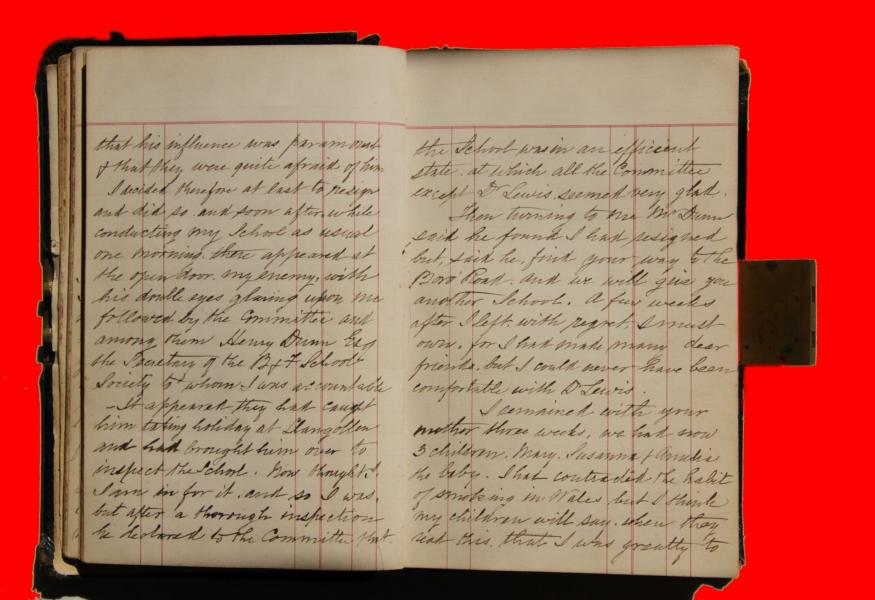 that his influence was paramount
& that they were quite afraid of him
I decided therefore at last to resign
and did so. and soon after, while
conducting my School as usual
one morning. there appeared at
the open door. my enemy, with
his double eyes glaring upon me
followed by the Committee and
among them Henry Dunn Esq
the Secretary of the B & F School
Society to whom I was accountable
– It appeared they had caught
him taking holiday at Llangollen
and had brought him over to
inspect the School. Now thought I.
I am in for it. and so I was.
but after a thorough inspection
he declared to the Committee that
the School was in an efficient
state. at which all the Committee
except Dr Lewis. seemed very glad.
Then turning to me Mr Dunn
said he found I had resigned
but, said he, find your way to the
Boro' Road. and we will give you
another School. A few weeks
after I left. with regret. I must
own. for I had made many dear
friends. but I could never have been
comfortable with Dr Lewis.
I remained with your
mother three weeks, we had now
3 children. Mary. Susanna & Amelia
the baby. I had contracted the habit
of smoking in Wales but I think
my children will say. when they
read this. that I was greatly to